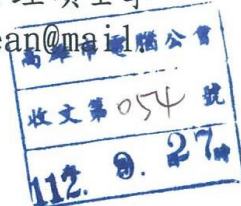 ean@mail.
高雄市電腦公會
收文第054號
112. 9. 27